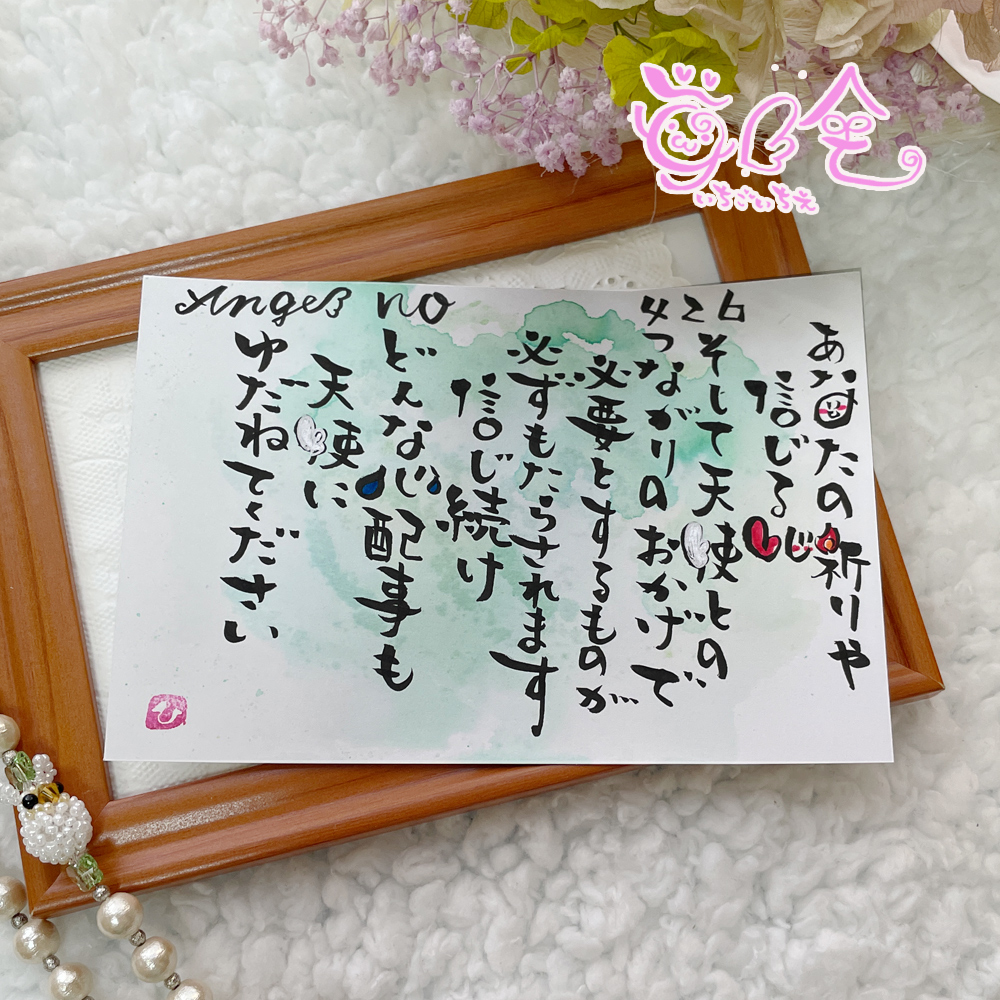 Angel no 426
あなたの祈りや
信じる心
そして天使との
つながりのおかげで
必要とするものが
必ずもたらされます
信じ続け
どんな心配事も
天使に
ゆだねてください
いちごいちえ